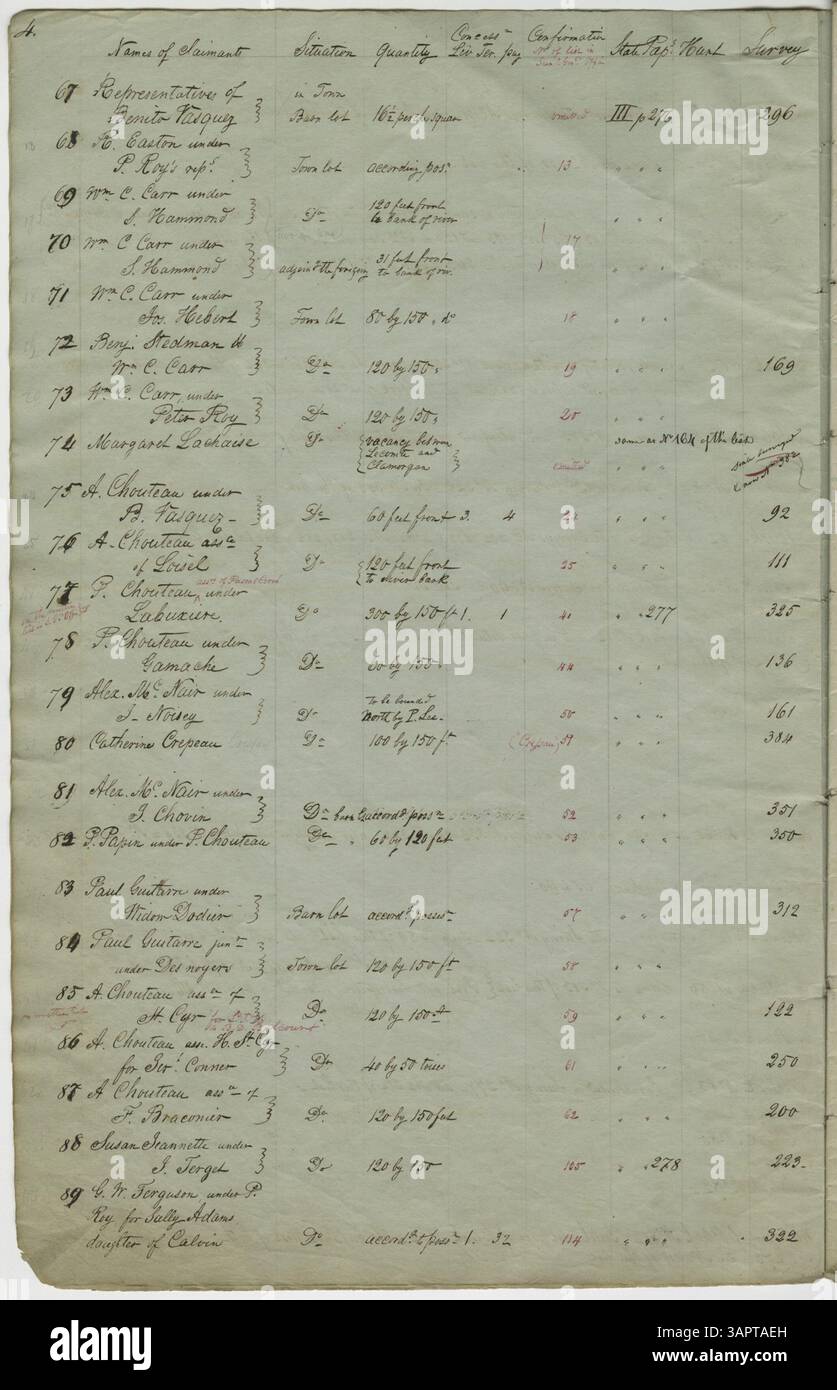 4.
Names of Claimants Situation Quantity Concessn Liv. Ter. pag Confirmation No. of list in State Paps Hunt Survey
67 Representatives of in Town
Benito Vasquez Barn lot 16½ perch squar omitted III p 276 296
68 R. Easton under
P. Roy's reps. Town lot according poss. 13 " " "
69 Wm C. Carr under 120 feet front
S. Hammond Do to bank of river " " "
70 Wm C Carr under 17
S. Hammond adjoing the foregoing 31 feet front to bank of riv. " " "
71 Wm. C. Carr under
Jos. Hebert Town lot 80 by 150 " do 18 " " "
72 Benj. Stedman
Wm C. Carr Do 120 by 150 " 19 " " " 169
73 Wm. C. Carr, under
Peter Roy Do 120 by 150 " 20 " " "
74 Margaret Lachaise Do vacancy between same as No 164 of the list
Lecomte and
Clamorgan omitted " " " since surveyed
now No 382
75 A. Chouteau under
B. Vasquez Do 60 feet front 3. 4 " " " 92
76 A. Chouteau assee
of Loisel Do 120 feet front 25 " " " 111
to river bank
77 P. Chouteau under
Labuxiere. Do 300 by 150 ft 1. 1 41 " " 277 325
78 P. Chouteau under
Gamache Do 30 by 150 " 44 " " " 136
79 Alex. Mc. Nair under To be bounded
J. Noisey Do North by P. Lee 50 " " " 161
80 Catherine Crepeau Do 100 by 150 ft (Crepau) 51 " " " 384
81 Alex. Mc. Nair under
J. Chovin Do barn accord. possn 52 " " " 351
82 P. Papin under P. Chouteau Do 60 by 120 feet 53 " " " 350
83 Paul Guitarre under
Widow Dodier Barn lot accord. possesn 57 " " " 312
84 Paul Guitarre junr
under Des noyers Town lot 120 by 150 ft 58 " " "
85 A. Chouteau assee of
St. Cyr Do 120 by 150 ft 59 " " " 122
86 A. Chouteau asse. H. St Cyr
for Jero. Conner Do 40 by 50 toises 61 " " " 250
87 A Chouteau assee of
F. Braconier Do. 120 by 150 feet 62 " " " 200
88 Susan Jeannette under
J. Terget Do 120 by 150 105 " " 278 223
89 G. W. Ferguson under P.
Roy for Sally Adams
daughter of Calvin Do accord. to possn 1. 32 114 " " " 322
alamy
Image ID: 3APTAEH
www.alamy.com